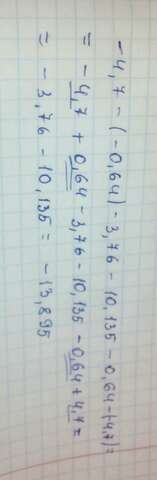 -4,7-(-0,64)-3,76-10,135-0,64-(-4,7)=
= -4,7 + 0,64 - 3,76 - 10,135 - 0,64 + 4,7 =
= -3,76 - 10,135 = -13,895